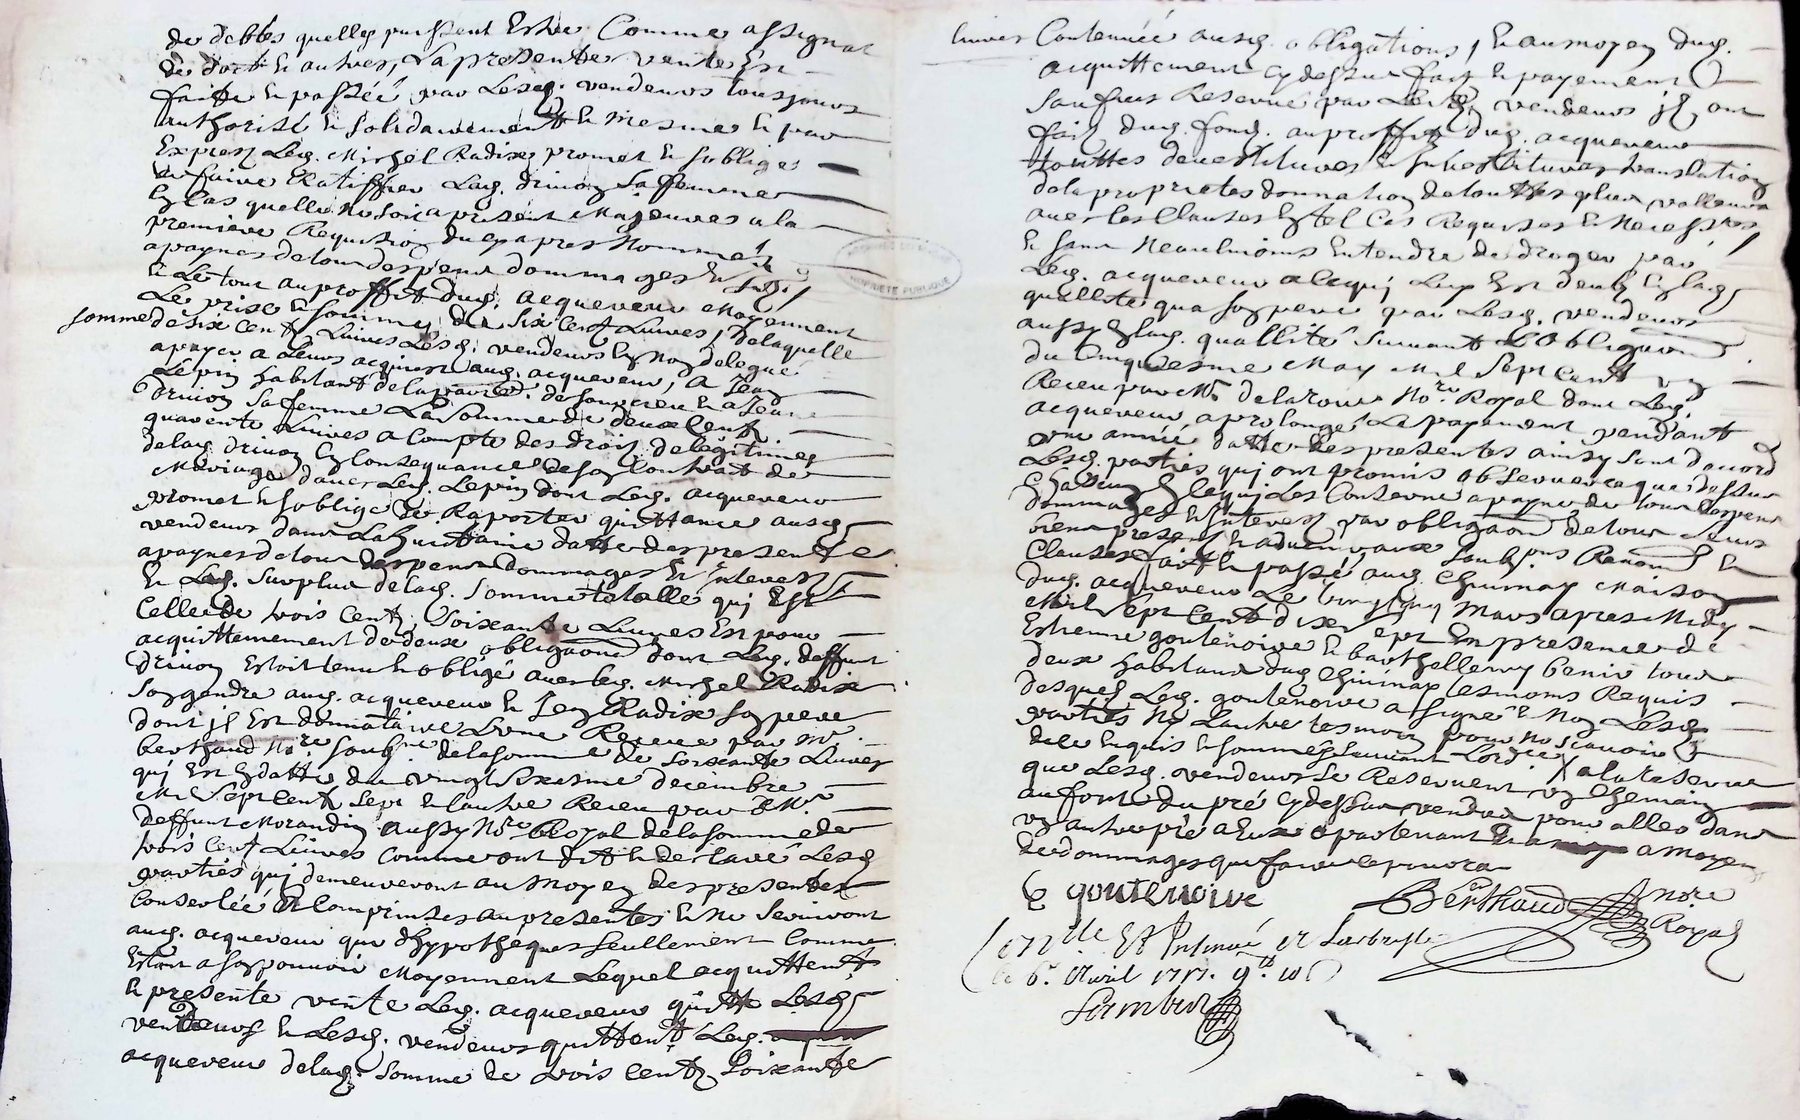 de debtes quelles puissent Estre Comme assignat
de doct & autres, La presente vente Est
faitte & passéé par Lesd. vendeurs tousjours
authorisé & solidairement & mesme & par
Expres Led. Mischel Radix promet & soblige
de faire Ratiffier Lad. drivon sa femme
Eylas quelle ne soit a present Majeures a la
premiere Requision du cy apres Nommé
a paynes de tous despens dommages &
& Le tout au proffit dud. acquereur Moyennent
Le prix & somme de six cent Livres, de laquelle
somme de six cent Livres Lesd. vendeurs
a payer a Leurs acquist aud. acquereur, a Jean
Lepin habitant de la parr. de & a Jeanne
drivon sa femme La somme de deux cent
quarente Livres a Compte des droits de legitimes
de lad. drivon Ey Consequance de soy Contrat de
Mariage d'avec Led. Lepin dont Led. acquereur
promet & soblige de Raporter quittance ausd.
vendeurs dans La huictaine datte des presentes
a paynes de tous despens dommages & Interest
& Led. surplus de lad. somme totalle qui Est
Celle de trois Cent soixante Livres Est pour
acquittement de deux obligaons dont Led. deffunt
drivon Estoit tenu & obligé avec led. Mischel Radix
soy gendre aud. acquereur & Jey Radix soy pere
dont il Est donnataire Lune Receue par Me.
berthaud Nore. soubne. de la somme de soixante Livres
qui Est Eydatte du vingt sixesme decembre
Mil sept Cent sept & lautre Receu par Me.
deffunt Morandin aussy Nore. Royal de la somme de
trois Cent Livres Comme ont dit & declaré Lesd.
parties qui demeureront au moyen des presentes
& Comprinses au presentes & ne serviront
aud. acquereur que dhypotheques seullement Comme
Estant a soy pouvoir Moyennent Lequel acquittement
& presente vente Led. acquereur quitte Lesd.
vendeurs & Lesd. vendeurs quittent Led.
acquereur de lad. somme de trois Cent soixante
livres Contenuéé ausd. obligations, & au moyen dud.
acquittement Cy dessus fait & payement
sauf Reserve par Lesd. vendeurs il ont
fait dud. fond. au proffit dud. acquereur
touttes devestitures & Investitures translation
de la propriete donnation de touttes plus valleurs
avec les Clauses Ey tel Cas Requises & Necessres,
& sans Neaulmoins Entendre de droger par
Led. acquereur a lequi Luy Est deub Ey lad.
quallité qua soy pere par Lesd. vendeurs
aussy Ey lad. quallité suivant LObligaon
du Cinquiesme May Mil sept Cent
Receu par Me. delaroue Nore. Royal dont Led.
acquereur a prolongé Le payement pendant
une année datte des presentes ainsy sont d'acord
Lesd. parties qui ont promis observer ce que dessus
Chascun Ey lequi Les Conserne a paynes de tous despens
dommages & Interest par obligaon de tous Leurs
biens presents & advenir avec soubns Renons &
Clauses fait & passé aud. Chirinay Maison
dud. acquereur Le vingt Mars apres Midy
Mil sept Cent dix sept En presence de
Estienne goutenoire & barthellemy benir tous
deux habitans dud Chirinay tesmoins Requis
desquels Led. goutenoire a signé & Non Lesd.
parties Ne Lautre tesmoin pour Ne scavoir
dece Enquis & sommés suivant Lordre, / a la reserve
que Lesd. vendeurs se Reservent vy Chemin
au fonds du pré Cydessus vendu pour aller dans
vy autre pré a Eux apartenant a moyen
de dommages que faire se pourra
E goutenoire
Berthaud Nore
Royal
Est Insinué et
le 6e. Avril 1717.
Lambert